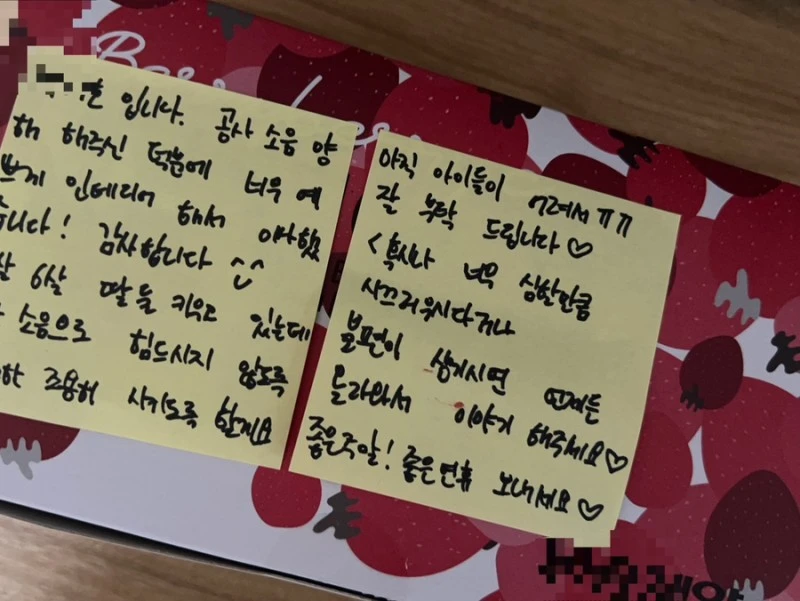 입니다. 공사 소음 양
해 해주신 덕분에 너무 예
쁘게 인테리어 해서 이사했
습니다! 감사합니다 ^^
살 6살 딸 둘 키우고 있는데
소음으로 힘드시지 않도록
조용히 시키도록 할게요
아직 아이들이 어려서 ㅠㅠ
잘 부탁 드립니다♡
<혹시나 너무 심할만큼
시끄러우시다거나
불편이 생기시면 언제든
올라와서 이야기 해주세요♡
좋은주말! 좋은연휴 보내세요♡